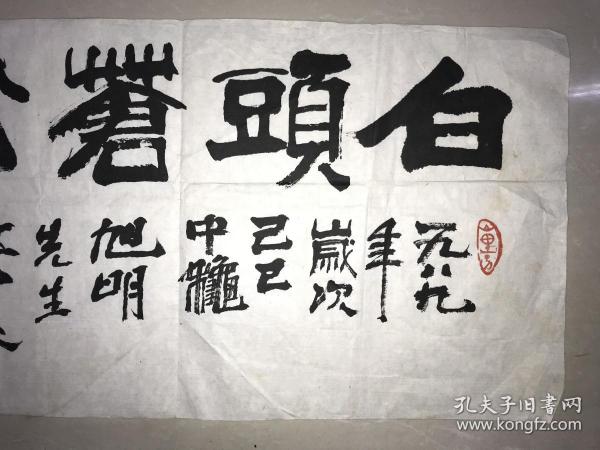 白頭蒼
一九八九
年
歲次
己巳
中龝
旭明
先生
孔夫子旧书网
www.kongfz.com